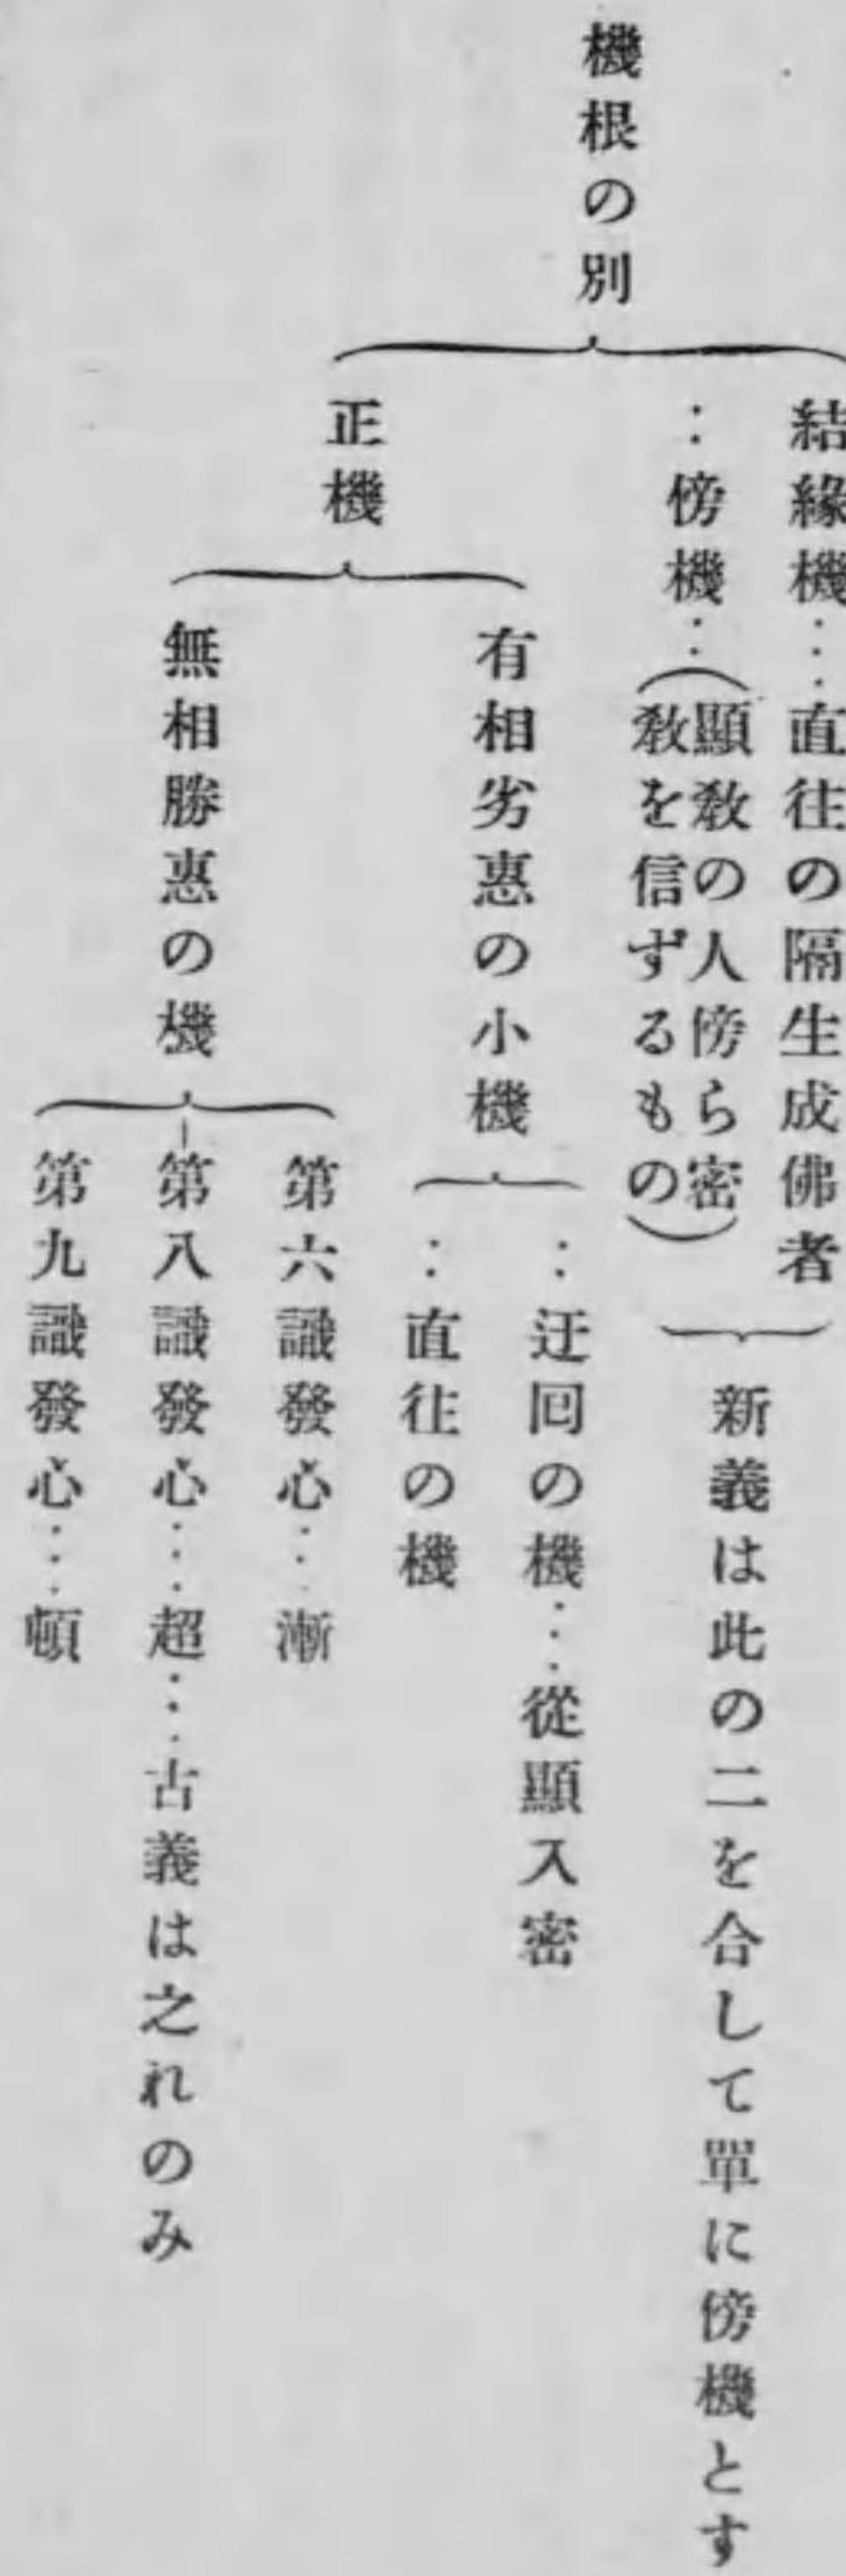 機根の別
結緣機…直往の隔生成佛者
：傍機：（顯敎の人傍ら密
敎を信ずるもの）
新義は此の二を合して單に傍機とす
正機
有相劣惠の小機
：迂回の機…從顯入密
：直往の機
無相勝惠の機
第六識發心…漸
第八識發心…超…古義は之れのみ
第九識發心…頓